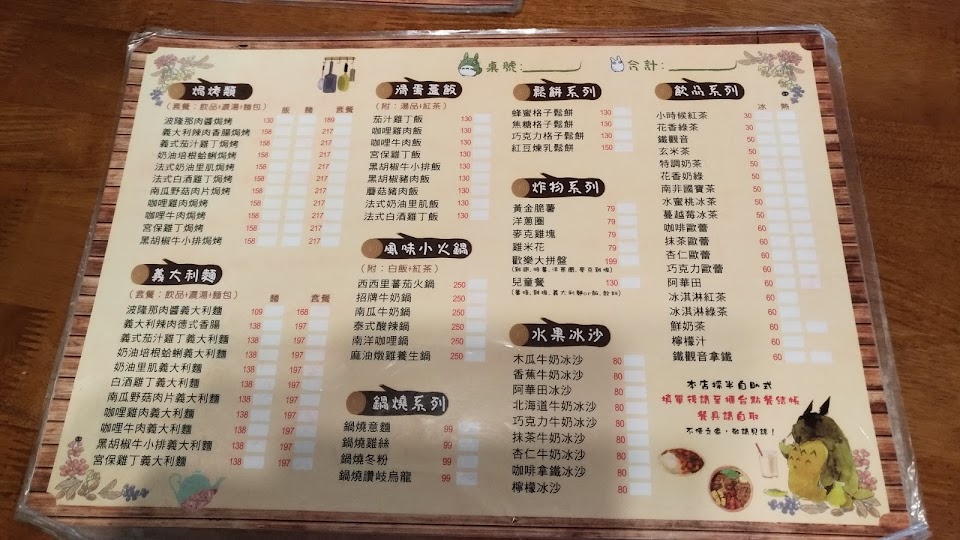 桌號: 合計:
焗烤類
(套餐:飲品+濃湯+麵包) 飯 麵 套餐
波隆那肉醬焗烤 130 189
義大利辣肉香腸焗烤 158 217
義式茄汁雞丁焗烤 158 217
奶油培根蛤蜊焗烤 158 217
法式奶油里肌焗烤 158 217
法式白酒雞丁焗烤 158 217
南瓜野菇肉片焗烤 158 217
咖哩雞肉焗烤 158 217
咖哩牛肉焗烤 158 217
宮保雞丁焗烤 158 217
黑胡椒牛小排焗烤 158 217
義大利麵
(套餐:飲品+濃湯+麵包) 麵 套餐
波隆那肉醬義大利麵 109 168
義大利辣肉德式香腸 138 197
義式茄汁雞丁義大利麵 138 197
奶油培根蛤蜊義大利麵 138 197
奶油里肌義大利麵 138 197
白酒雞丁義大利麵 138 197
南瓜野菇肉片義大利麵 138 197
咖哩雞肉義大利麵 138 197
咖哩牛肉義大利麵 138 197
黑胡椒牛小排義大利麵 138 197
宮保雞丁義大利麵 138 197
滑蛋蓋飯
(附:湯品+紅茶)
茄汁雞丁飯 130
咖哩雞肉飯 130
咖哩牛肉飯 130
宮保雞丁飯 130
黑胡椒牛小排飯 130
黑胡椒豬肉飯 130
蘑菇豬肉飯 130
法式奶油里肌飯 130
法式白酒雞丁飯 130
風味小火鍋
(附:白飯+紅茶)
西西里蕃茄火鍋 250
招牌牛奶鍋 250
南瓜牛奶鍋 250
泰式酸辣鍋 250
南洋咖哩鍋 250
麻油燉雞養生鍋 250
鍋燒系列
鍋燒意麵 99
鍋燒雞絲 99
鍋燒冬粉 99
鍋燒讚岐烏龍 99
鬆餅系列
蜂蜜格子鬆餅 130
焦糖格子鬆餅 130
巧克力格子鬆餅 130
紅豆煉乳鬆餅 150
炸物系列
黃金脆薯 79
洋蔥圈 79
麥克雞塊 79
雞米花 79
歡樂大拼盤 199
兒童餐 130
水果冰沙
木瓜牛奶冰沙 80
香蕉牛奶冰沙 80
阿華田冰沙 80
北海道牛奶冰沙 80
巧克力牛奶冰沙 80
抹茶牛奶冰沙 80
杏仁牛奶冰沙 80
咖啡拿鐵冰沙 80
檸檬冰沙 80
飲品系列
冰 熱
小時候紅茶 30
花香綠茶 30
鐵觀音 50
玄米茶 50
特調奶茶 50
花香奶綠 50
南非國寶茶 50
水蜜桃冰茶 50
蔓越莓冰茶 50
咖啡歐蕾 60
抹茶歐蕾 60
杏仁歐蕾 60
巧克力歐蕾 60
阿華田 60
冰淇淋紅茶 60
冰淇淋綠茶 60
鮮奶茶 60
檸檬汁 60
鐵觀音拿鐵 60
本店採半自助式
填單後請至櫃台點餐結帳
餐具請自取